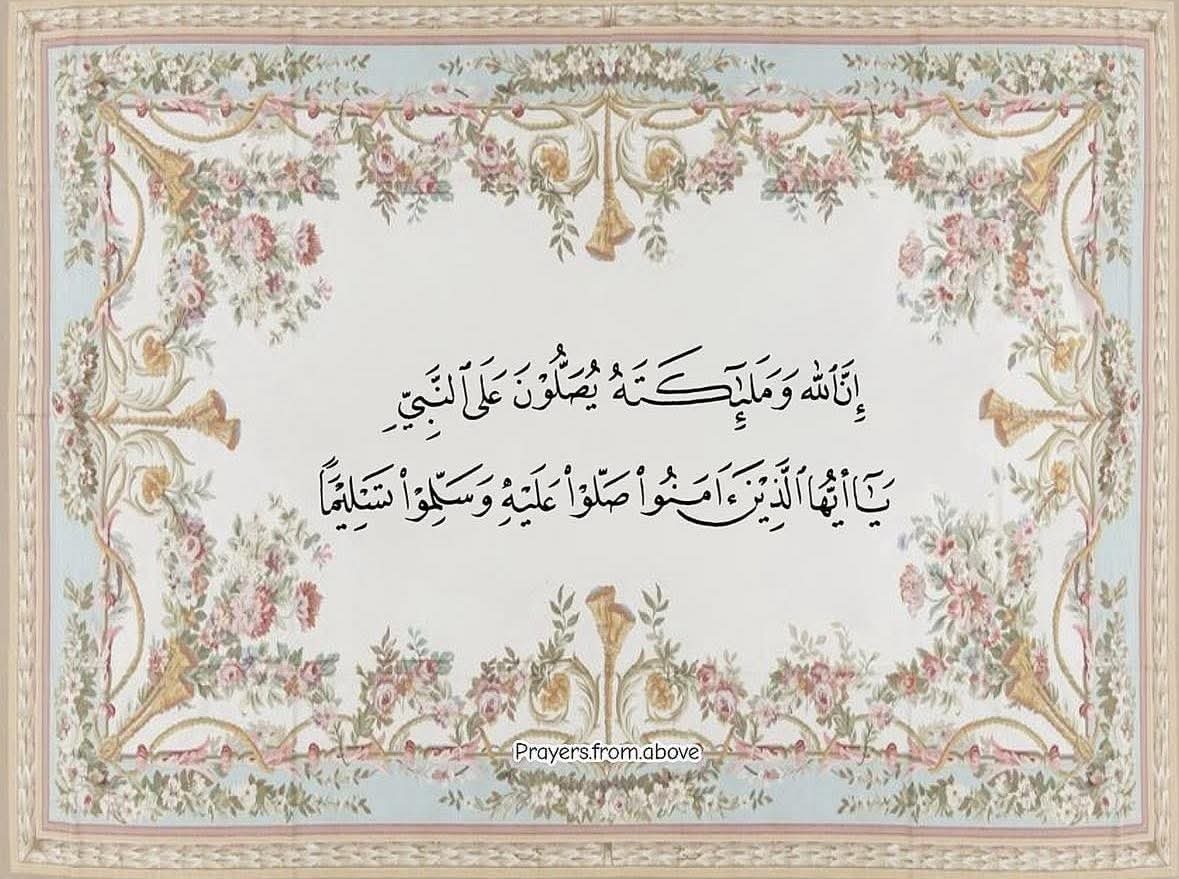 إِنَّ ٱللَّهَ وَمَلَٰٓئِكَتَهُۥ يُصَلُّونَ عَلَى ٱلنَّبِيِّ
يَٰٓأَيُّهَا ٱلَّذِينَ ءَامَنُوا۟ صَلُّوا۟ عَلَيْهِ وَسَلِّمُوا۟ تَسْلِيمًا
Prayers.from.above